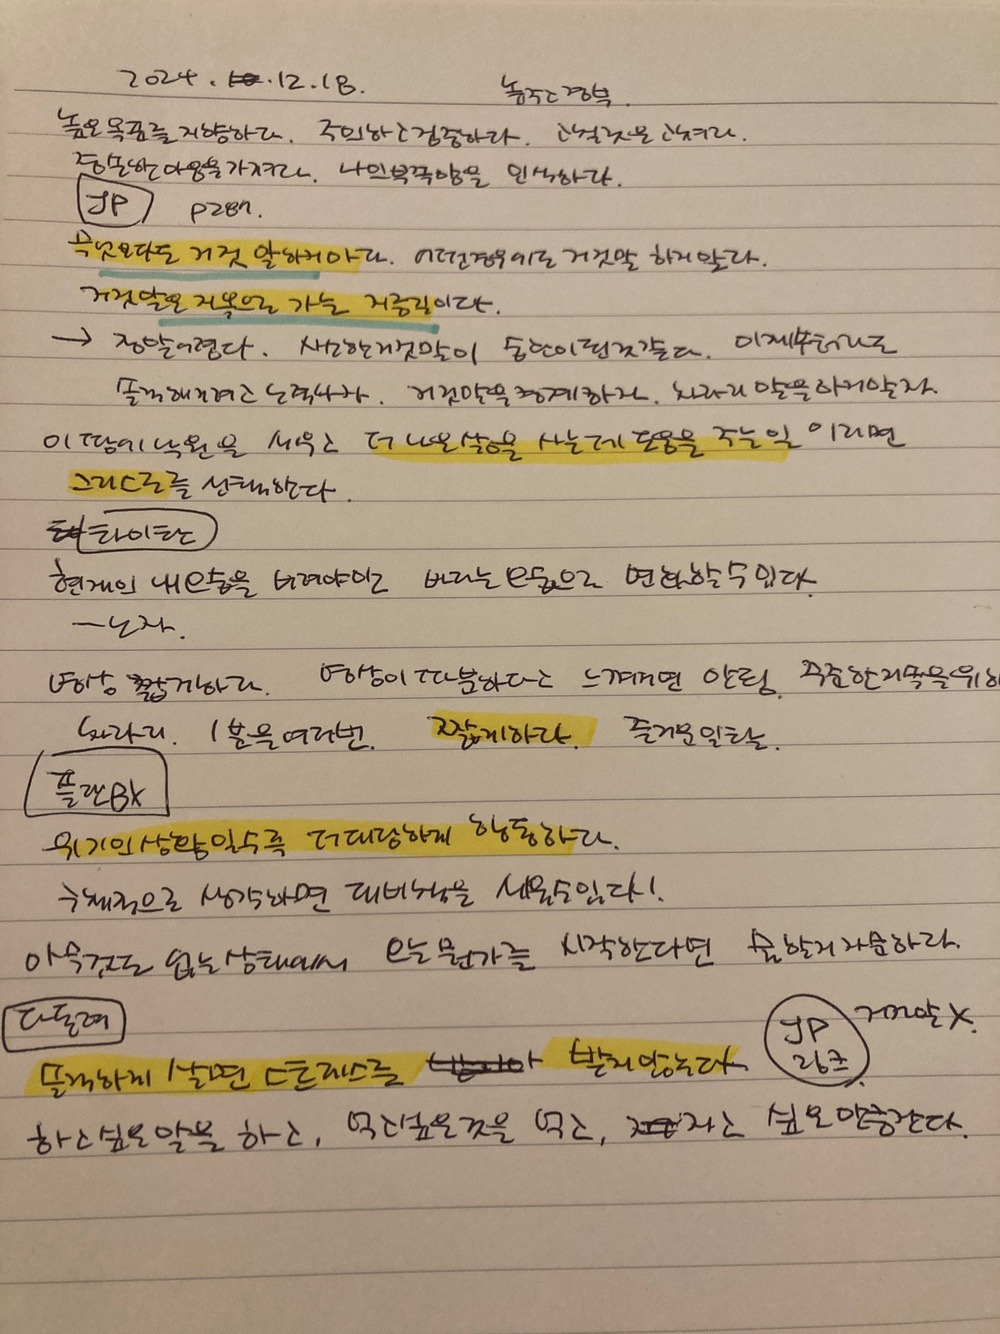 2024. 12.18.
높은 목표를 지향하라. 주의하고 집중하라. 고칠것은 고쳐라.
겸손한 마음을 가져라. 나의 부족함을 인식하라.
JP P287.
무엇보다도 거짓 말하지 마라. 어떤경우에도 거짓말 하지 말라.
거짓말은 지옥으로 가는 지름길이다.
→ 정말 어렵다. 사소한 거짓말이 습관이 된것 같다. 이제부터라도
솔직해지려고 노력하자. 거짓말을 경계하자. 차라리 말을 하지 말자.
이 땅에 낙원을 세우고 더 나은 삶을 사는데 도움을 주는 일 이라면
그리스도를 선택한다.
타이탄
현재의 내모습을 버려야만 바라는 모습으로 변화할 수 있다.
- 노자.
명상 짧게하라. 명상이 따분하다고 느껴지면 안됨. 꾸준한 지속을 위해
차라리. 1분을 여러번. 짧게하라. 즐거운일하는.
플랜BX
위기의 상황일수록 더 대담하게 행동하라.
구체적으로 생각하면 대비책을 세울수 있다!
아무것도 없는 상태에서 오늘 뭔가를 시작한다면 뭘 할지 자문하라.
다독여
JP 링크 거짓말X.
솔직하게 살면 스트레스를 받지 않는다.
하고 싶은 말을 하고, 먹고 싶은 것을 먹고, 자고 싶은 만큼 잔다.